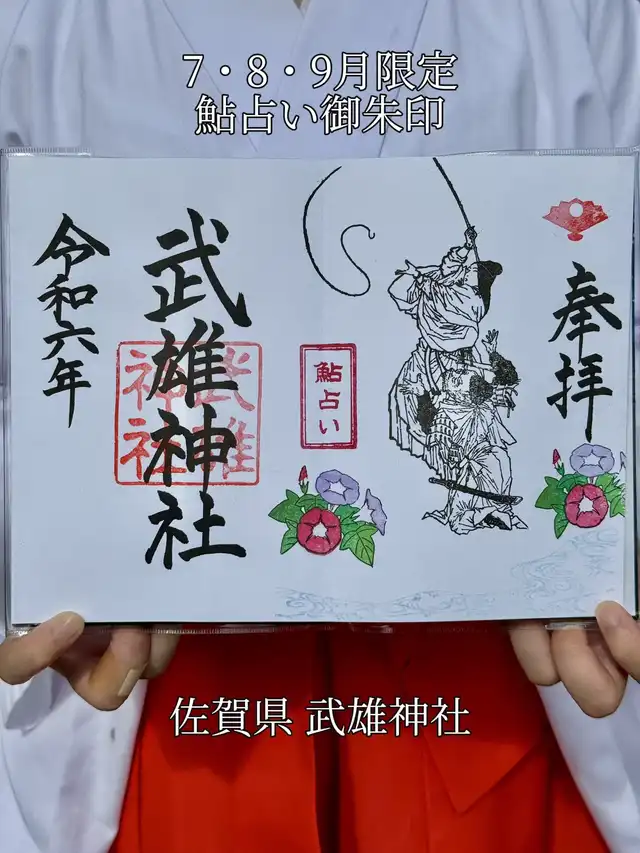 7・8・9月限定
鮎占い御朱印
奉拝
鮎占い
武雄神社
武雄
神社
令和六年
佐賀県 武雄神社